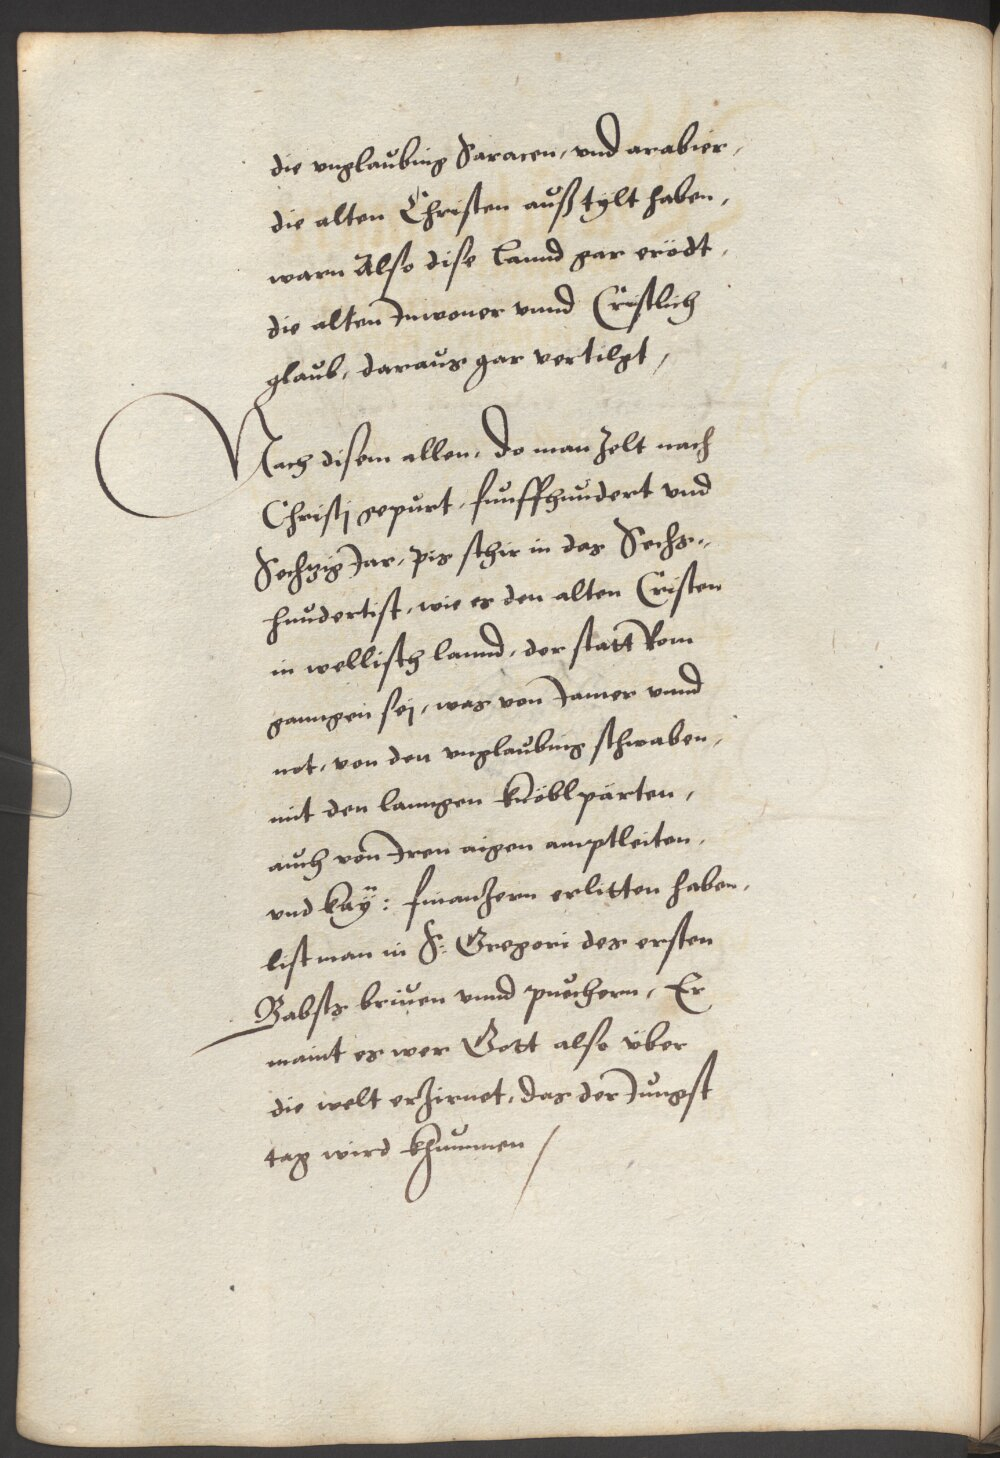 die vnglaubing Saracen, vnd arabier,
die alten Christen außtylt haben,
warn Also dise lannd gar erödt,
die alten Inwoner vnnd Cristlich
glaub, daraus gar vertilgt,
Nach disem allen, do man Zelt nach
Christj gepurt, funffhundert vnd
Sechzig Jar, pis schir in das Sechs-
hundertist, wie es den alten Cristen
in wellisch lannd, der statt Rom
ganngen sej, was von Jamer vnnd
not, von den vnglaubing schwaben,
mit den lanngen knöblparten,
auch von Iren aigen amptleiten,
vnd kaÿ: finanzern erlitten haben,
list man in S: Gregori des ersten
Babsts briuen vnnd puechern, Er
maint es wer Gott also über
die welt erZirnet, das der Jungst
tag wird khummen /